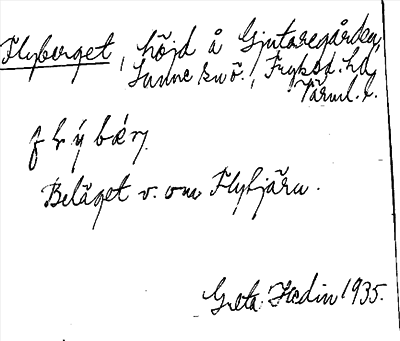 Flyberget, höjd å Gjutaregården,
Sunne sn ö., Fryksd. hd,
Värml. l.
flýbǽrj
Beläget v. om Flytjärn.
Greta Hedin 1935.